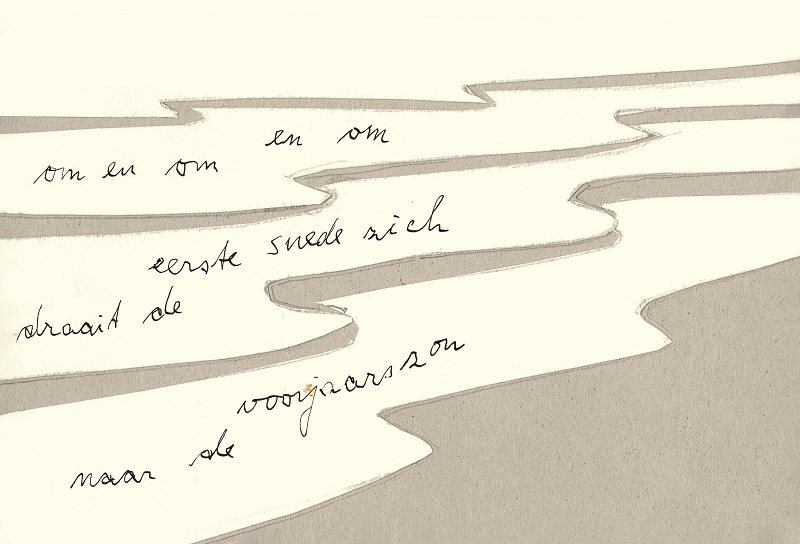 om en om en om
draait de eerste snede zich
naar de voorjaarszon